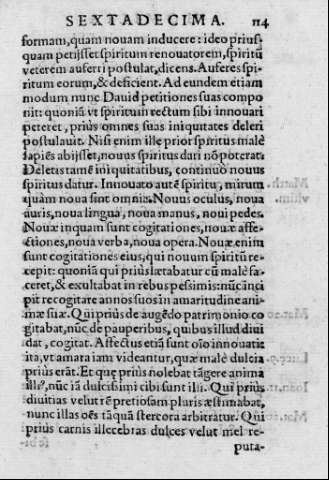 SEXTADECIMA. 114
formam, quam nouam inducere: ideo prius-
quam petijsset spiritum renouatorem, spiritũ
veterem auferri postulat, dicens. Auferes spi-
ritum eorum, & deficient. Ad eundem etiam
modum nunc Dauid petitiones suas compo
nit: quoniã vt spiritum rectum sibi innouari
peteret, priùs omnes suas iniquitates deleri
postulauit. Nisi enim ille prior spiritus malè
sapiẽs abijsset, nouus spiritus dari nõ poterat.
Deletis tamẽ iniquitatibus, continuò nouus
spiritus datur. Innouato autẽ spiritu, mirum
quàm noua sint omnia. Nouus oculus, noua
auris, noua lingua, noua manus, noui pedes.
Nouæ inquam sunt cogitationes, nouæ affe-
ctiones, noua verba, noua opera. Nouæ enim
sunt cogitationes eius, qui nouum spiritũ re-
cepit: quoniã qui priùs lætabatur cũ malè fa-
ceret, & exultabat in rebus pessimis: nũc ãnci
pit recogitare annos suos in amaritudine ani-
mæ suæ. Qui priùs de augẽdo patrimonio co
gitabat, nũc de pauperibus, quibus illud diui
dat, cogitat. Affectus etiã sunt oĩno innouati:
ita, vt amara iam videantur, quæ malè dulcia
priùs erãt. Et quę priùs nolebat tãgere anima
illiꝰ, nũc iã dulcissimi cibi sunt illi. Qui priùs
diuitias velut rẽ pretiosam pluris æstimabat,
nunc illas oẽs tãquã stercora arbitratur. Qui
priùs carnis illecebras dulces velut mel re-
puta-